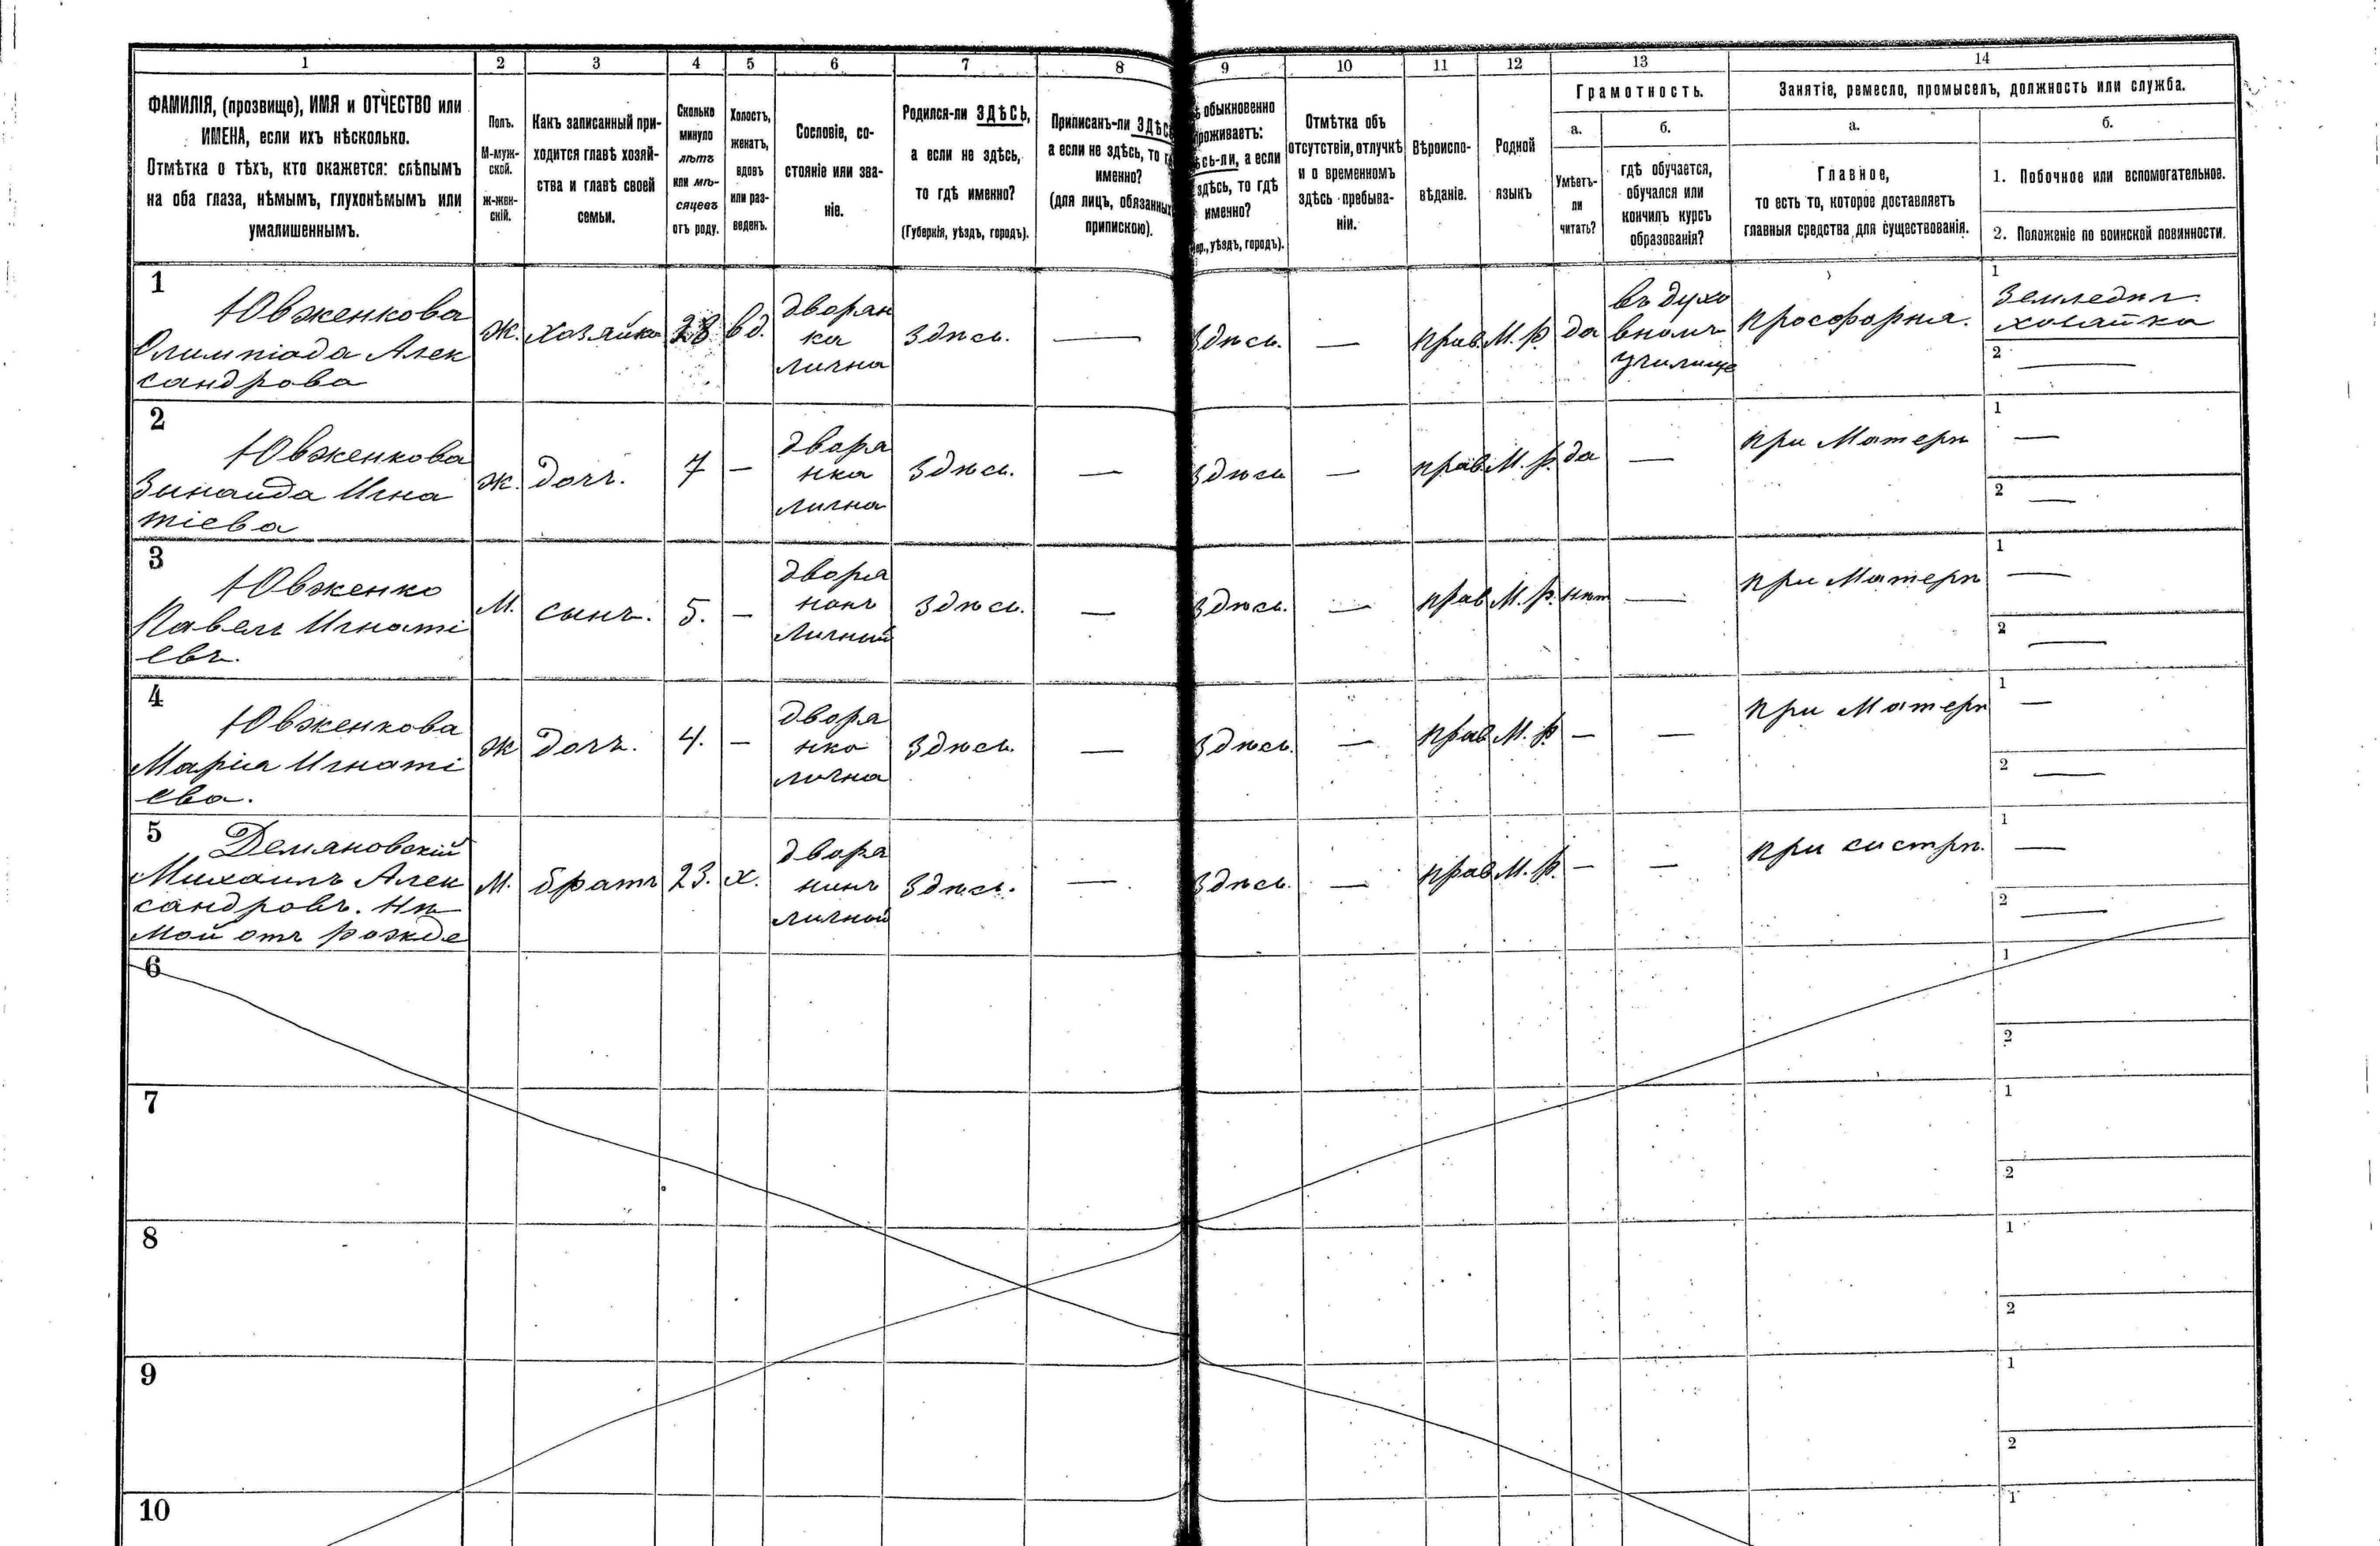 1 2 3 4 5 6 7 8 9 10 11 12 13 14
ФАМИЛІЯ, (прозвище), ИМЯ и ОТЧЕСТВО или
ИМЕНА, если ихъ нѣсколько.
Отмѣтка о тѣхъ, кто окажется: слѣпымъ
на оба глаза, нѣмымъ, глухонѣмымъ или
умалишеннымъ.
Полъ.
М-муж-
ской.
ж-жен-
скій.
Какъ записанный при-
ходится главѣ хозяй-
ства и главѣ своей
семьи.
Сколько
минуло
лѣтъ
или мѣ-
сяцевъ
отъ роду.
Холостъ,
женатъ,
вдовъ
или раз-
веденъ.
Сословіе, со-
стояніе или зва-
ніе.
Родился-ли ЗДѢСЬ,
а если не здѣсь,
то гдѣ именно?
(Губернія, уѣздъ, городъ).
Приписанъ-ли ЗДѢС
а если не здѣсь, то г
именно?
(для лицъ, обязанных
припискою).
ѣ обыкновенно
роживаетъ:
ѣсь-ли, а если
здѣсь, то гдѣ
именно?
ер., уѣздъ, городъ).
Отмѣтка объ
отсутствіи, отлучкѣ
и о временномъ
здѣсь пребыва-
ніи.
Вѣроиспо-
вѣданіе.
Родной
языкъ
Грамотность.
а.
Умѣетъ-
ли
читать?
б.
гдѣ обучается,
обучался или
кончилъ курсъ
образованія?
Занятіе, ремесло, промыселъ, должность или служба.
а.
Главное,
то есть то, которое доставляетъ
главныя средства для существованія.
б.
1. Побочное или вспомогательное.
2. Положеніе по воинской повинности.
1
Ювженкова
Олимпіада Алек
сандрова
Ж.
хозяйка
28
вд.
дворян
ка
лична
Здѣсь.
—
Здѣсь.
—
прав.
М. р.
да
въ духо
вномъ
училище
просфорня.
1
Земледѣл.
хозяйка
2
—
2
Ювженкова
Зинаида Игна
тіева
Ж.
дочь.
7
—
дворя
нка
лична
Здѣсь.
—
Здѣсь
—
прав
М. р.
да
—
при Матери
1
—
2
—
3
Ювженко
Павелъ Игнаті
евъ.
М.
сынъ.
5.
—
дворя
нинъ
личный
Здѣсь.
—
Здѣсь.
—
прав
М. р.
нѣт
—
при Матери
1
—
2
—
4
Ювженкова
Марія Игнаті
ева.
Ж
дочь.
4.
—
дворя
нка
лична
Здѣсь.
—
Здѣсь.
—
прав
М. р.
—
—
при Матери
1
—
2
—
5
Демяновскій
Михаилъ Алек
сандровъ. Нѣ
мой отъ рожде
М.
братъ
23.
х.
дворя
нинъ
личный
Здѣсь.
—
Здѣсь.
—
прав
М. р.
—
—
при систрѣ.
1
—
2
—
6
1
2
7
1
2
8
1
2
9
1
2
10
1